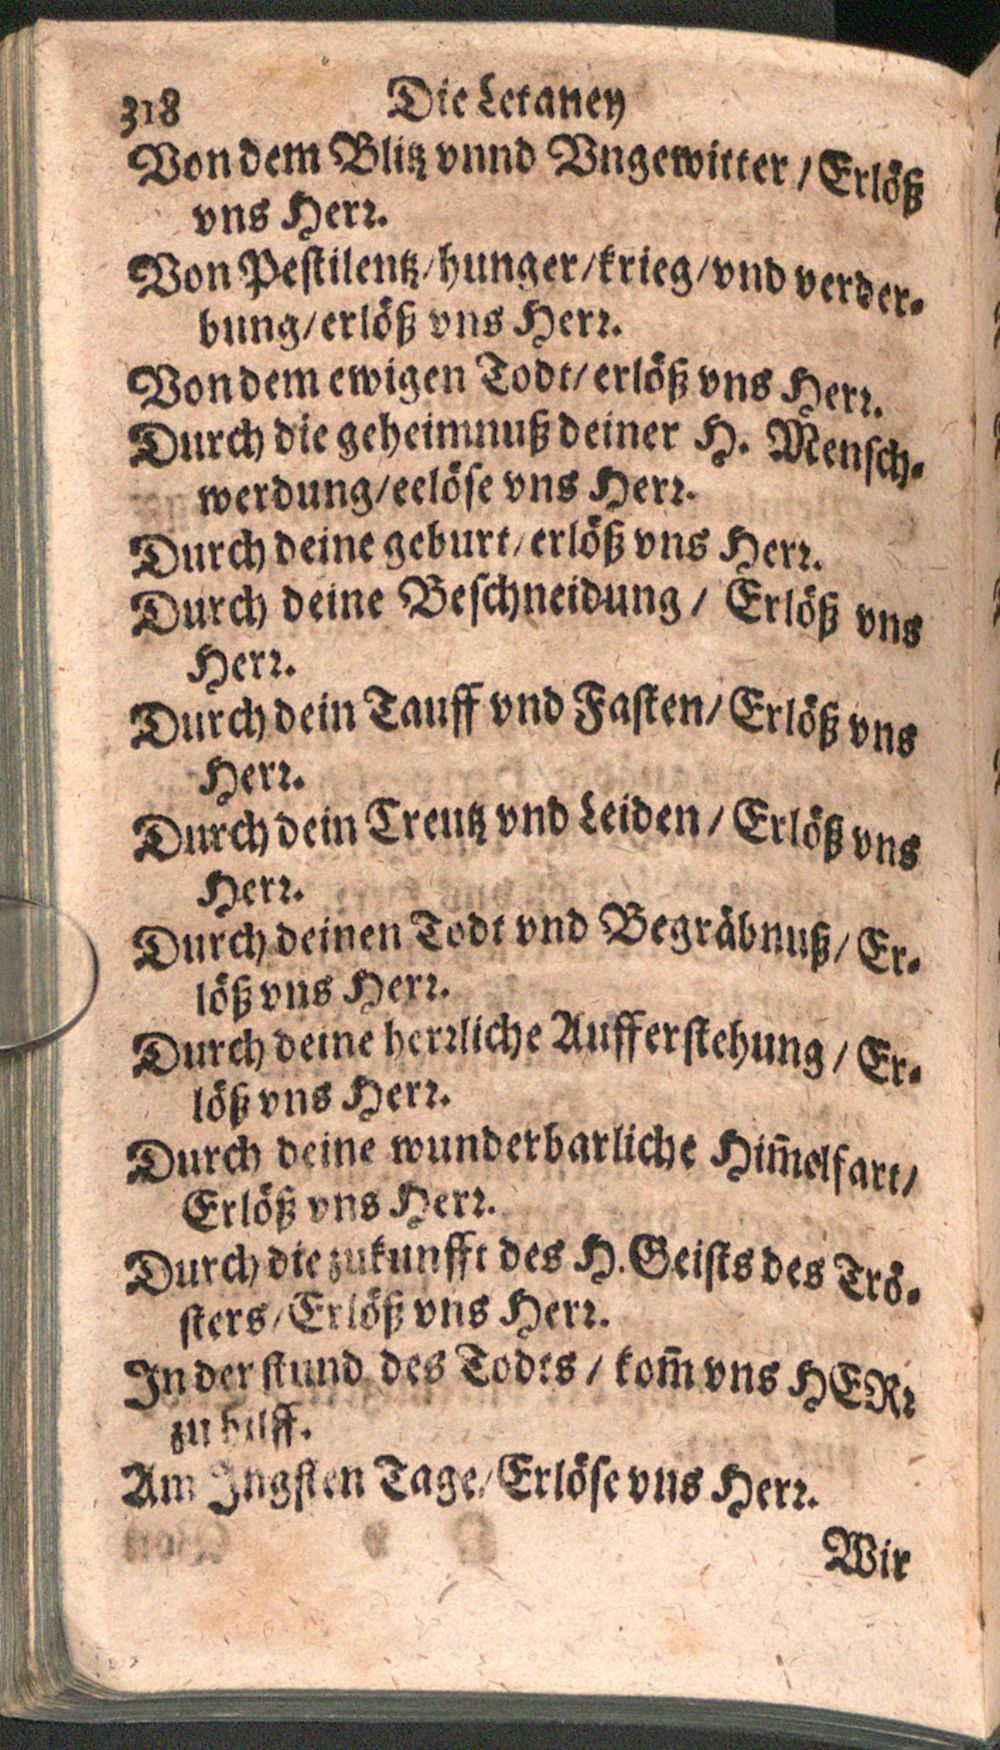 318 Die Letaney
Von dem Blitz vnnd Vngewitter / Erlöß
vns Herr.
Von Pestilentz / hunger / krieg / vnd verder-
bung / erlöß vns Herr.
Von dem ewigen Todt / erlöß vns Herr.
Durch die geheimnuß deiner H. Mensch-
werdung / eelöse vns Herr.
Durch deine geburt / erlöß vns Herr.
Durch deine Beschneidung / Erlöß vns
Herr.
Durch dein Tauff vnd Fasten / Erlöß vns
Herr.
Durch dein Creutz vnd Leiden / Erlöß vns
Herr.
Durch deinen Todt vnd Begräbnuß / Er-
löß vns Herr.
Durch deine herrliche Aufferstehung / Er-
löß vns Herr.
Durch deine wunderbarliche Him̃elfart /
Erlöß vns Herr.
Durch die zukunfft des H. Geists des Trö-
sters / Erlöß vns Herr.
In der stund des Todts / kom̃ vns HERr
zu hilff.
Am Jngsten Tage / Erlöse vns Herr.
Wir